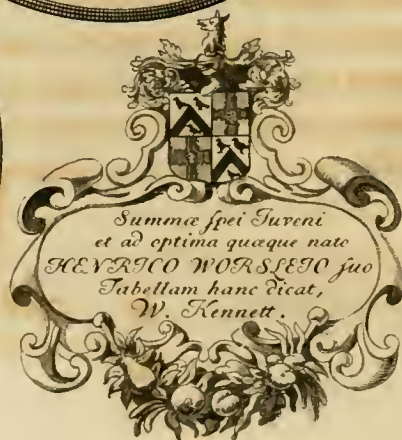 Summæ spei Juveni
et ad optima quæque nato
HENRICO WORSLEIO suo
Tabellam hanc dicat,
W. Kennett.